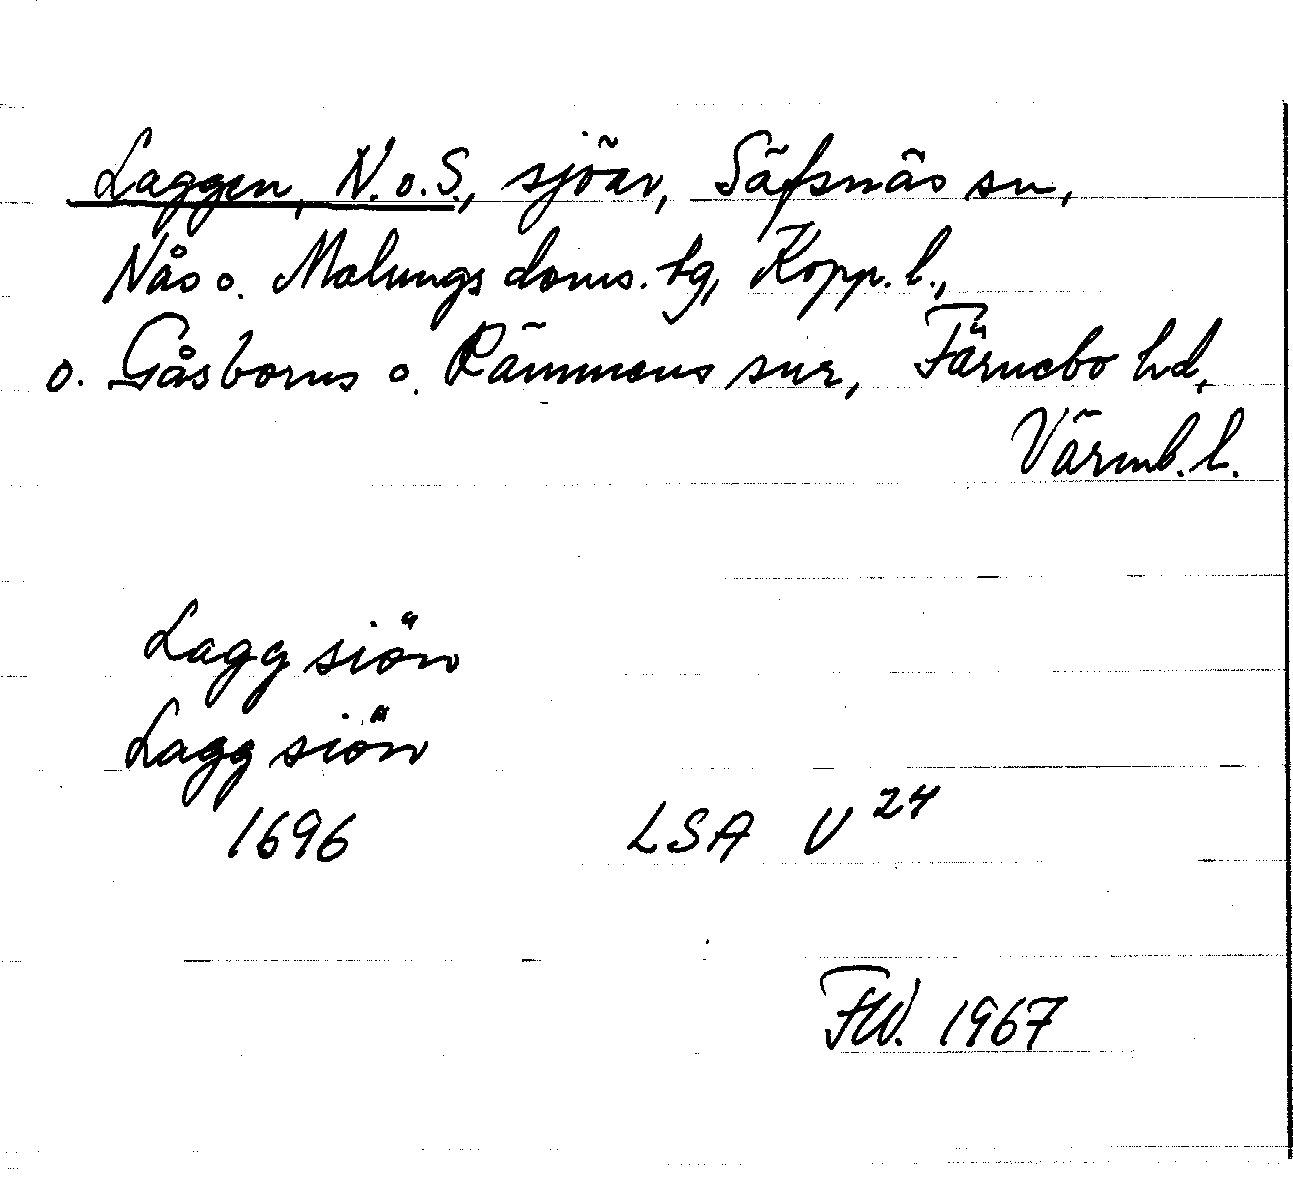 Laggen, N. o. S., sjöar, Säfsnäs sn,
Nås o. Malungs doms. tg, Kopp. l.,
o. Gåsborns o. Rämmens snr, Färnebo hd,
Värml. l.
Lagg siön
Lagg siön
1696 LSA U 24
FW. 1967